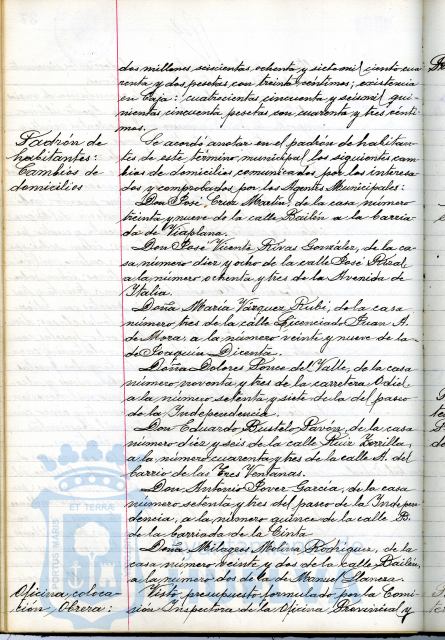 dos millones seiscientas ochenta y siete mil ciento cua
renta y dos pesetas con treinta céntimos; existencia
en Caja: cuatrocientas cincuenta y seis mil qui
nientas cincuenta pesetas con cuarenta y tres cénti
mos.
Padrón de
habitantes:
Cambios de
domicilios
Se acordó anotar en el padrón de habitan-
tes de este término municipal los siguientes cam
bios de domicilios comunicados por los interesa
dos y comprobados por los Agentes Municipales:
Don José Cruz Martín, de la casa número
treinta y nueve de la calle Bailén a la barria
da de Viaplana.
Don José Vicente Rivas González, de la ca-
sa número diez y ocho de la calle José Rizal
a la número ochenta y tres de la Avenida de
Italia.
Doña María Vázquez Rubí, de la casa
número tres de la calle Licenciado Juan A.
de Mora, a la número veinte y nueve de la
de Joaquín Dicenta.
Doña Dolores Ponce del Valle, de la casa
número noventa y tres de la carretera Odiel
a la número setenta y siete de la del paseo
de la Independencia.
Don Eduardo Bustelo Pavón, de la casa
número diez y seis de la calle Ruiz Zorrilla,
a la número cuarenta y tres de la calle A. del
barrio de las Tres Ventanas.
Don Antonio Jover García, de la casa
número setenta y tres del paseo de la Indepen
dencia, a la número quince de la calle R.
de la barriada de la Cinta.
Doña Milagros Molina Rodríguez, de la
casa número veinte y dos de la calle Bailén,
a la número dos de la de Manuel Llanera.
Oficina coloca-
ción Obrera:
Visto presupuesto formulado por la Comi-
sión Inspectora de la Oficina Provincial y
PORTUS MARIS
ET TERRAE